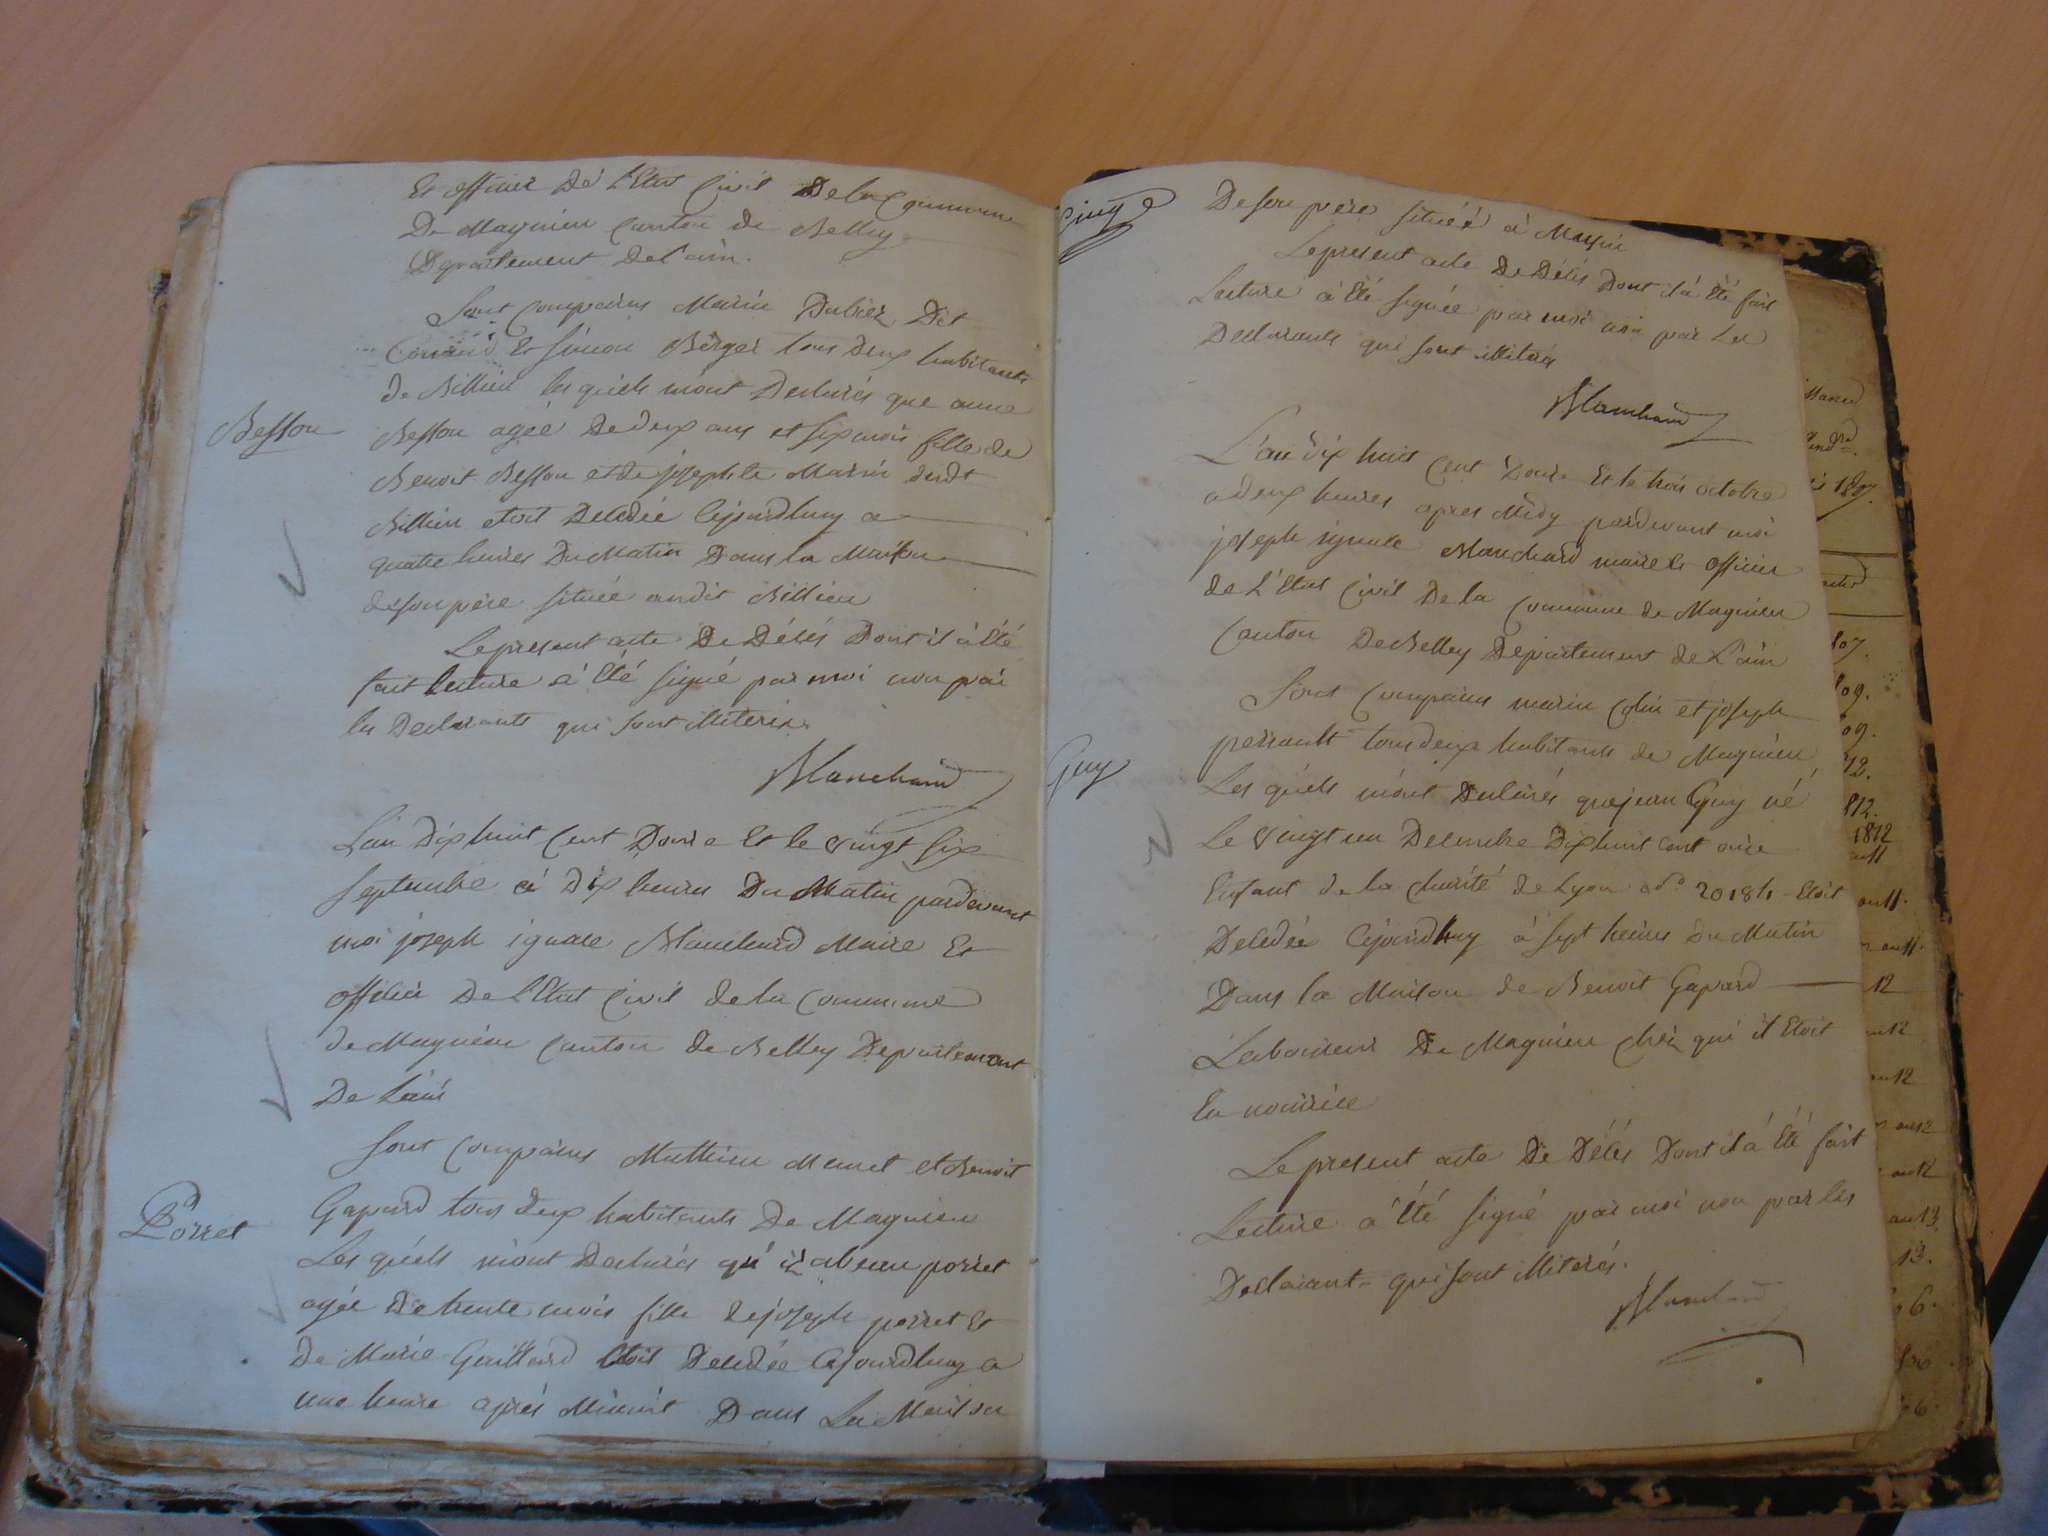 Et officier De l'Etat Civil De la Commune
De Magnieu Canton de Belley
Departement De l'ain.
Sont Comparus Marin Dubiez Dit
Et Simon Berger tous Deux habitants
de Billieu les quels m'ont Declarés que anne
Besson
Besson agée De deux ans et six mois fille de
Benoit Besson et de josephte Marin dudt
Billieu etoit Decedée Cejourdhuy a
quatre heures Du Matin Dans la Maison
de son pere située audit Billieu
Le present acte De Décés Dont il à Eté
fait Lecture à Eté signé par moi non par
les Declarants qui sont illiterés.
Blanchard
L'an Dix huit Cent Douze Et le vingt six
Septembre à Dix heures Du Matin pardevant
moi joseph ignace Blanchard Maire Et
officier De l'Etat Civil de la Commune
de Magnieu Canton de Belley Departement
De L'ain
Sont Comparus Mathieu Manet et Benoit
Gapard tous deux habitants De Magnieu
Porret
Les quels m'ont Declarés qu' porret
agée De trente mois fille De joseph porret Et
De Marie Gaillard Etoit Decedée Cejourdhuy a
une heure aprés Minuit Dans La Maison
De son pere située à
Le present acte De Décés Dont il à Eté fait
Lecture à Eté signée par moi non par Les
Declarants qui sont illiterés
Blanchard
L'an dix huit Cent Douze Et le trois octobre
a deux heures apres Midy pardevant moi
joseph ignace Blanchard maire Et officier
de L'Etat Civil De la Commune de Magnieu
Canton De Belley Departement de L'ain
Sont Comparus marin Colin et joseph
perrault tous deux habitants de Magnieu
Guy
Les quels m'ont Declarés que jean Guy né
Le vingt un Decembre Dix huit cent onze
Enfant de la charité de Lyon n° 20184 Etoit
Decedée Cejourdhuy à sept heures du Matin
Dans la Maison de Benoit Gapard
Laboureur De Magnieu chez qui il Etoit
En nourrice
Le present acte De Décés Dont il à Eté fait
Lecture à Eté signé par moi non par les
Declarant qui sont illiterés.
Blanchard
1807.
807.
809.
809.
812.
1812
an 11
an 11.
an 11.
12
an 12
an 12
an 12
an 12
an 13.
13.